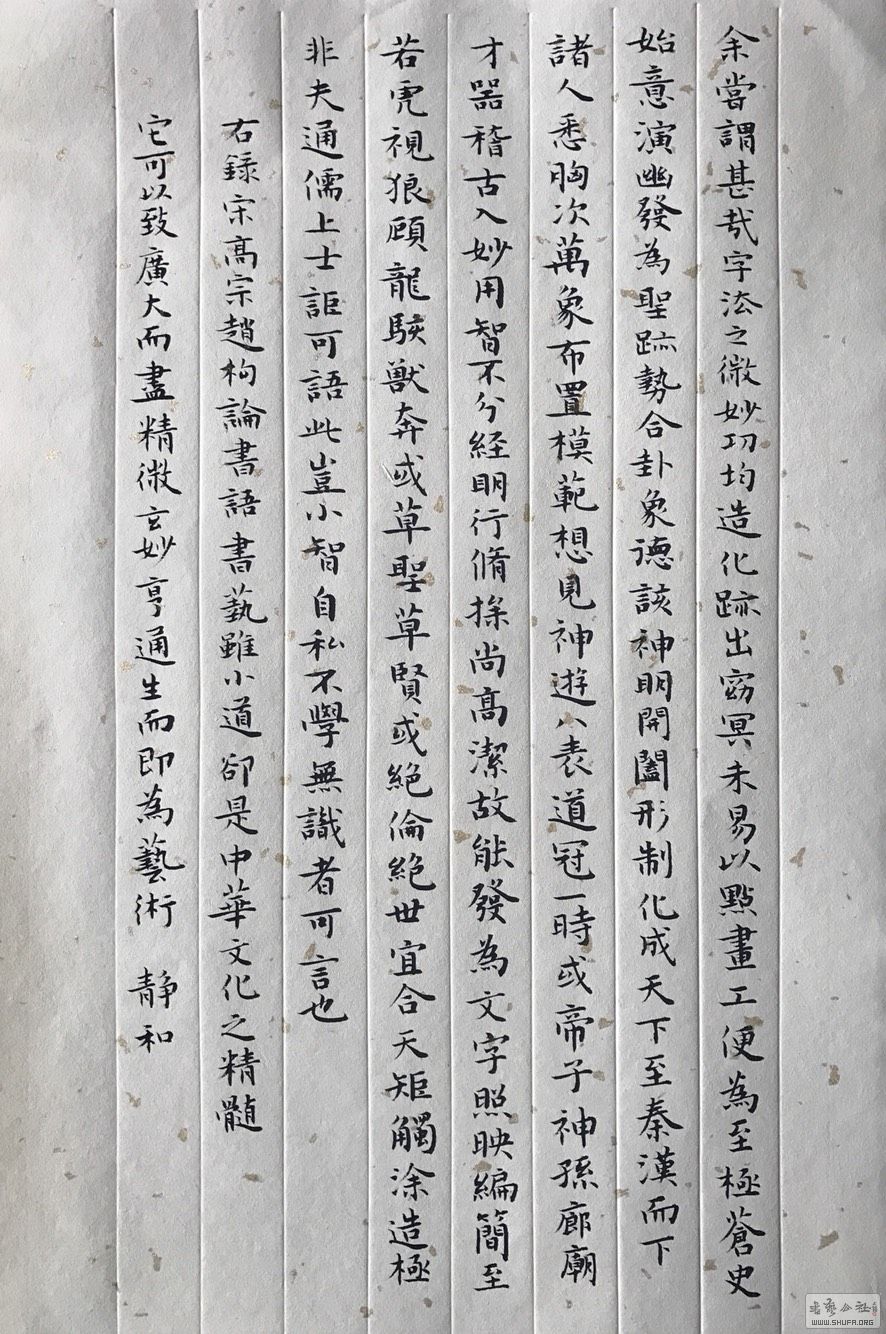 余嘗謂甚哉字法之微妙功均造化跡出窈冥未易以點畫工便為至極蒼史
始意演幽發為聖跡勢合卦象德該神明開闔形制化成天下至秦漢而下
諸人悉胸次萬象布置模範想見神遊八表道冠一時或帝子神孫廊廟
才器稽古入妙用智不分經明行脩操尚高潔故能發為文字照映編簡至
若虎視狼顧龍駭獸奔或草聖草賢或絕倫絕世宜合天矩觸塗造極
非夫通儒上士詎可語此豈小智自私不學無識者可言也
右錄宋高宗趙构論書語書藝雖小道卻是中華文化之精髓
它可以致廣大而盡精微玄妙亨通生而即為藝術 靜和
書藝公社
WWW.SHUFA.ORG